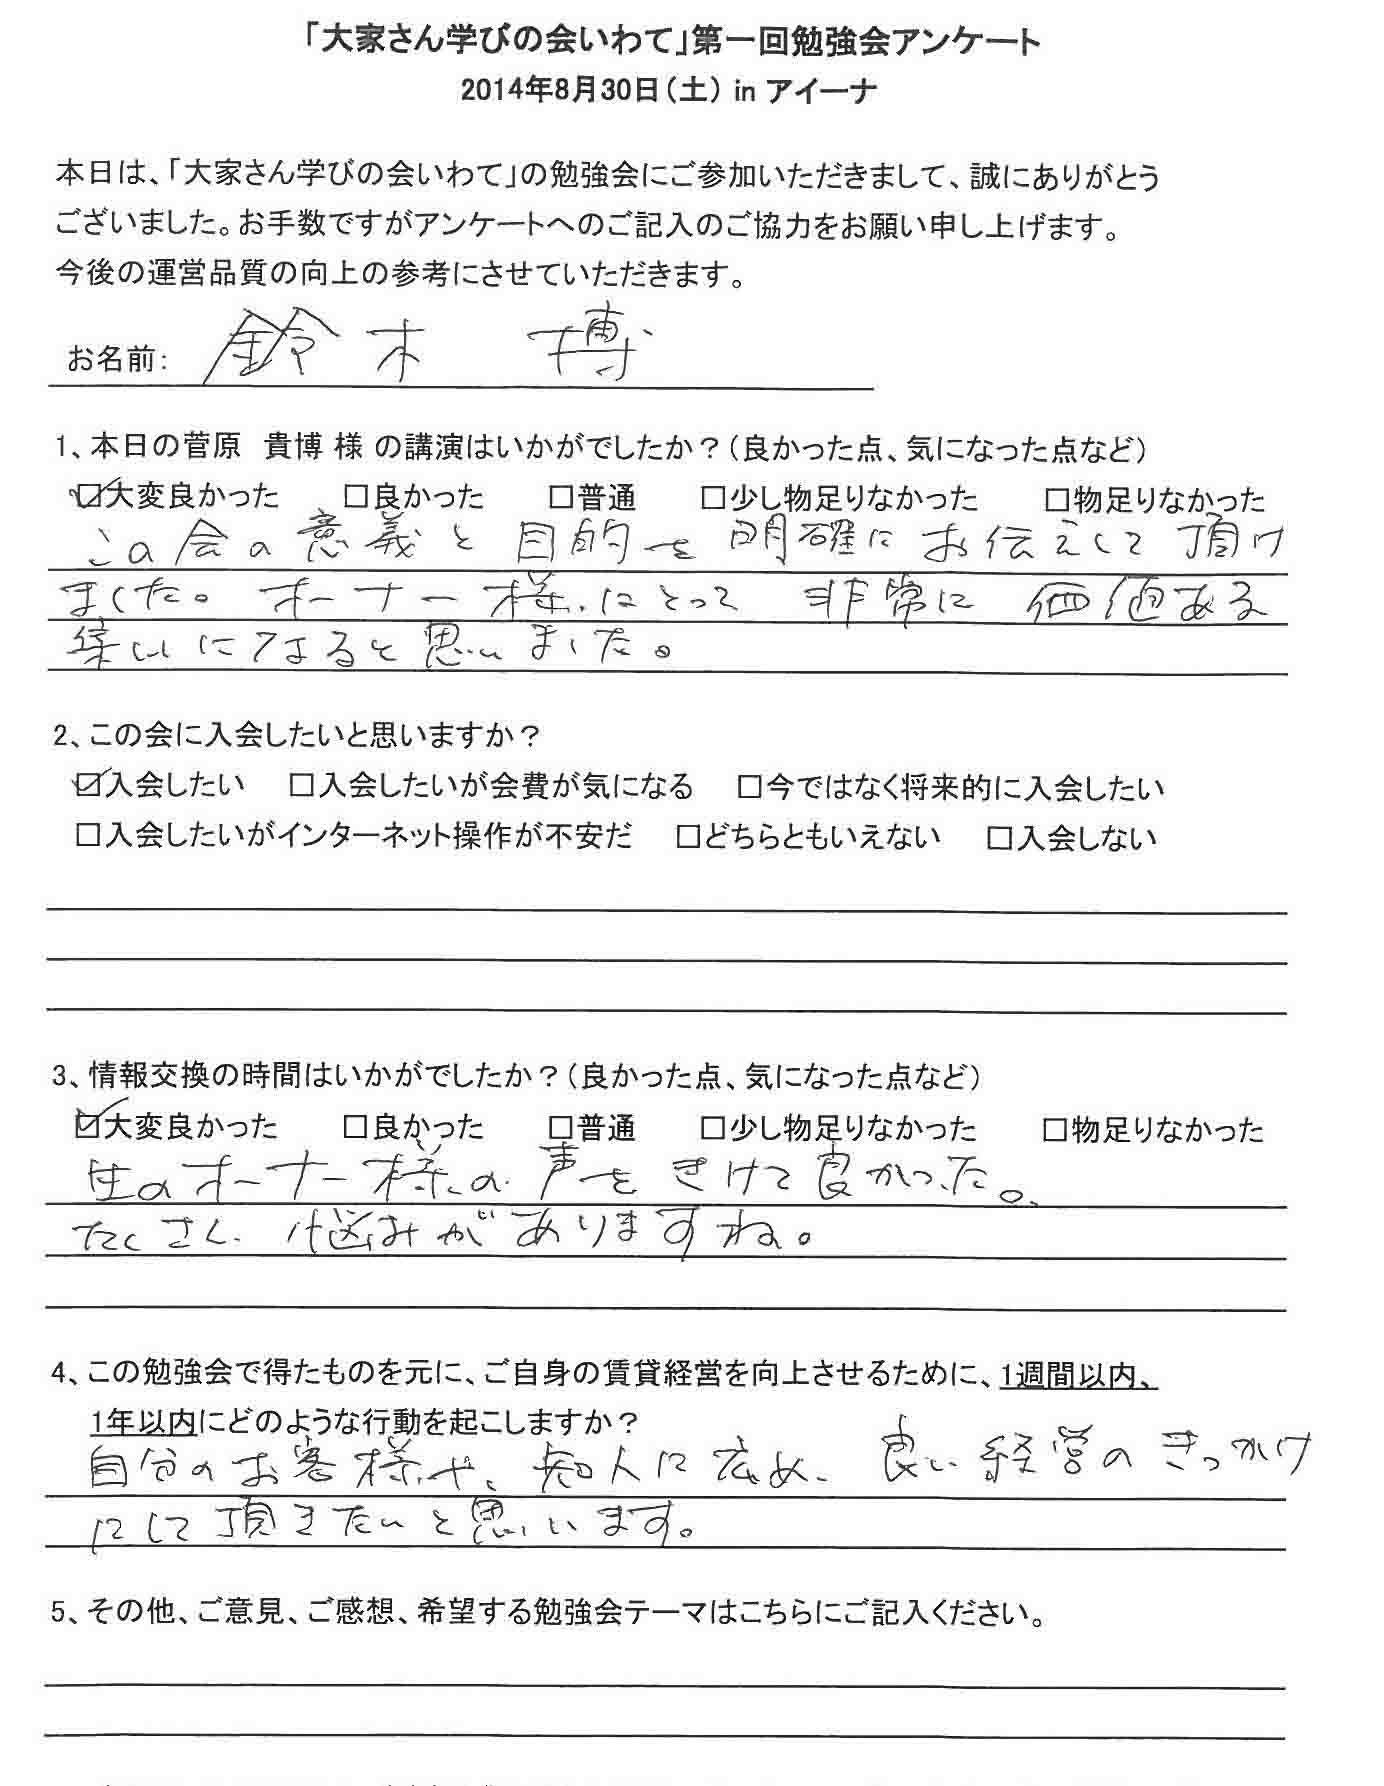 「大家さん学びの会いわて」第一回勉強会アンケート
2014年8月30日(土) in アイーナ
本日は、「大家さん学びの会いわて」の勉強会にご参加いただきまして、誠にありがとう
ございました。お手数ですがアンケートへのご記入のご協力をお願い申し上げます。
今後の運営品質の向上の参考にさせていただきます。
お名前: 鈴木 博
1、本日の菅原 貴博 様 の講演はいかがでしたか？(良かった点、気になった点など)
☑大変良かった □良かった □普通 □少し物足りなかった □物足りなかった
この会の意義と目的を明確にお伝えして頂け
ました。オーナー様にとって 非常に 価値ある
集いになると思いました。
2、この会に入会したいと思いますか？
☑入会したい □入会したいが会費が気になる □今ではなく将来的に入会したい
□入会したいがインターネット操作が不安だ □どちらともいえない □入会しない
3、情報交換の時間はいかがでしたか？(良かった点、気になった点など)
☑大変良かった □良かった □普通 □少し物足りなかった □物足りなかった
生のオーナー様の声をきけて良かった。
たくさん 悩みがありますね。
4、この勉強会で得たものを元に、ご自身の賃貸経営を向上させるために、1週間以内、
1年以内にどのような行動を起こしますか？
自分のお客様や、知人に広め、良い経営のきっかけ
にして頂きたいと思います。
5、その他、ご意見、ご感想、希望する勉強会テーマはこちらにご記入ください。